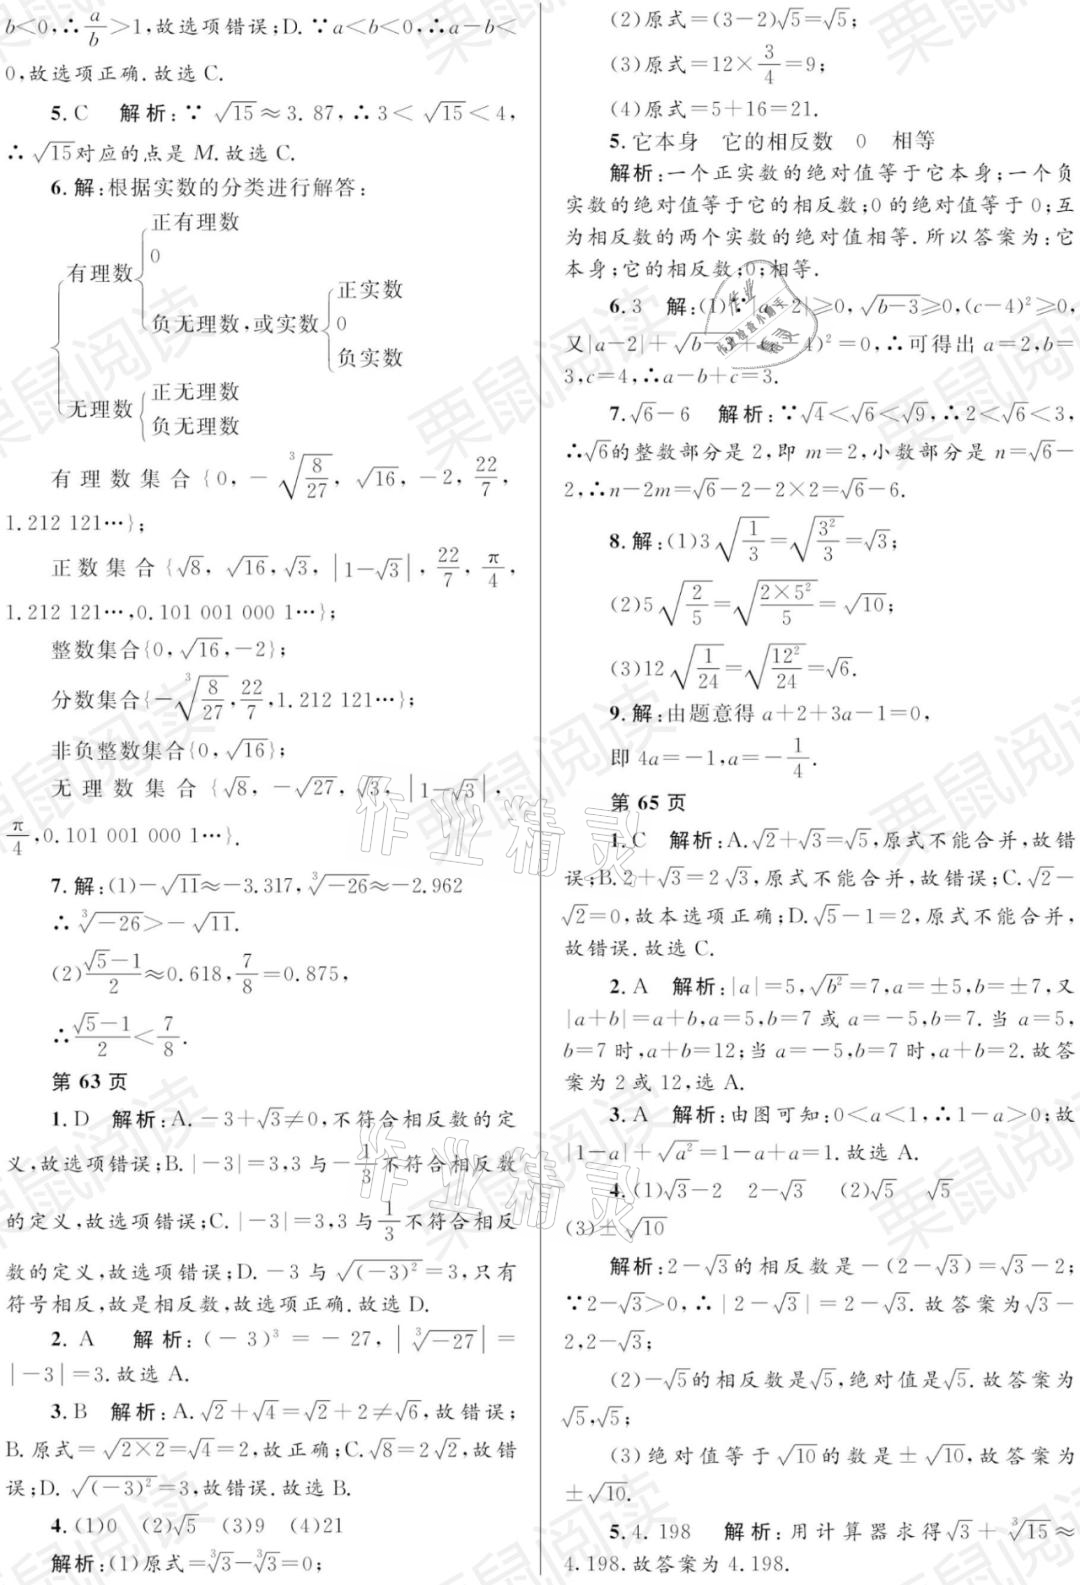 b<0,∴a/b>1,故选项错误;D.∵a<b<0,∴a-b<
0,故选项正确.故选 C.
5.C 解析:∵√15≈3.87,∴3<√15<4,
∴√15对应的点是 M.故选 C.
6.解:根据实数的分类进行解答:
正有理数
0
有理数
正实数
负无理数,或实数
0
负实数
正无理数
无理数
负无理数
有理数集合{0,-∛(8/27),√16,-2,22/7,
1.212 121…};
正数集合{√8,√16,√3,|1-√3|,22/7,π/4,
1.212 121…,0.101 001 000 1…};
整数集合{0,√16,-2};
分数集合{-∛(8/27),22/7,1.212 121…};
非负整数集合{0,√16};
无理数集合{√8,-√27,√3,|1-√3|,
π/4,0.101 001 000 1…}.
7.解:(1)-√11≈-3.317,∛-26≈-2.962
∴∛-26>-√11.
(2)(√5-1)/2≈0.618,7/8=0.875,
∴(√5-1)/2<7/8.
第 63 页
1.D 解析:A.-3+√3≠0,不符合相反数的定
义,故选项错误;B.|-3|=3,3 与-1/3不符合相反数
的定义,故选项错误;C.|-3|=3,3 与1/3不符合相反
数的定义,故选项错误;D.-3 与√(-3)²=3,只有
符号相反,故是相反数,故选项正确.故选 D.
2.A 解析:(-3)³=-27,|∛-27|=
|-3|=3.故选 A.
3.B 解析:A.√2+√4=√2+2≠√6,故错误;
B.原式=√2×2=√4=2,故正确;C.√8=2√2,故错
误;D.√(-3)²=3,故错误.故选 B.
4.(1)0 (2)√5 (3)9 (4)21
解析:(1)原式=∛3-∛3=0;
(2)原式=(3-2)√5=√5;
(3)原式=12×3/4=9;
(4)原式=5+16=21.
5.它本身 它的相反数 0 相等
解析:一个正实数的绝对值等于它本身;一个负
实数的绝对值等于它的相反数;0 的绝对值等于 0;互
为相反数的两个实数的绝对值相等.所以答案为:它
本身;它的相反数;0;相等.
6.3 解:(1)∵|a-2|≥0,√b-3≥0,(c-4)²≥0,
又|a-2|+√b-3+(c-4)²=0,∴可得出 a=2,b=
3,c=4,∴a-b+c=3.
7.√6-6 解析:∵√4<√6<√9,∴2<√6<3,
∴√6的整数部分是 2,即 m=2,小数部分是 n=√6-
2,∴n-2m=√6-2-2×2=√6-6.
8.解:(1)3√(1/3)=√(3²/3)=√3;
(2)5√(2/5)=√(2×5²/5)=√10;
(3)12√(1/24)=√(12²/24)=√6.
9.解:由题意得 a+2+3a-1=0,
即 4a=-1,a=-1/4.
第 65 页
1.C 解析:A.√2+√3=√5,原式不能合并,故错
误;B.2+√3=2√3,原式不能合并,故错误;C.√2-
√2=0,故本选项正确;D.√5-1=2,原式不能合并,
故错误.故选 C.
2.A 解析:|a|=5,√b²=7,a=±5,b=±7,又
|a+b|=a+b,a=5,b=7 或 a=-5,b=7.当 a=5,
b=7 时,a+b=12;当 a=-5,b=7 时,a+b=2.故答
案为 2 或 12,选 A.
3.A 解析:由图可知:0<a<1,∴1-a>0;故
|1-a|+√a²=1-a+a=1.故选 A.
4.(1)√3-2 2-√3 (2)√5 √5
(3)±√10
解析:2-√3的相反数是-(2-√3)=√3-2;
∵2-√3>0,∴|2-√3|=2-√3.故答案为√3-
2,2-√3;
(2)-√5的相反数是√5,绝对值是√5.故答案为
√5,√5;
(3)绝对值等于√10的数是±√10,故答案为
±√10.
5.4.198 解析:用计算器求得√3+∛15≈
4.198.故答案为 4.198.